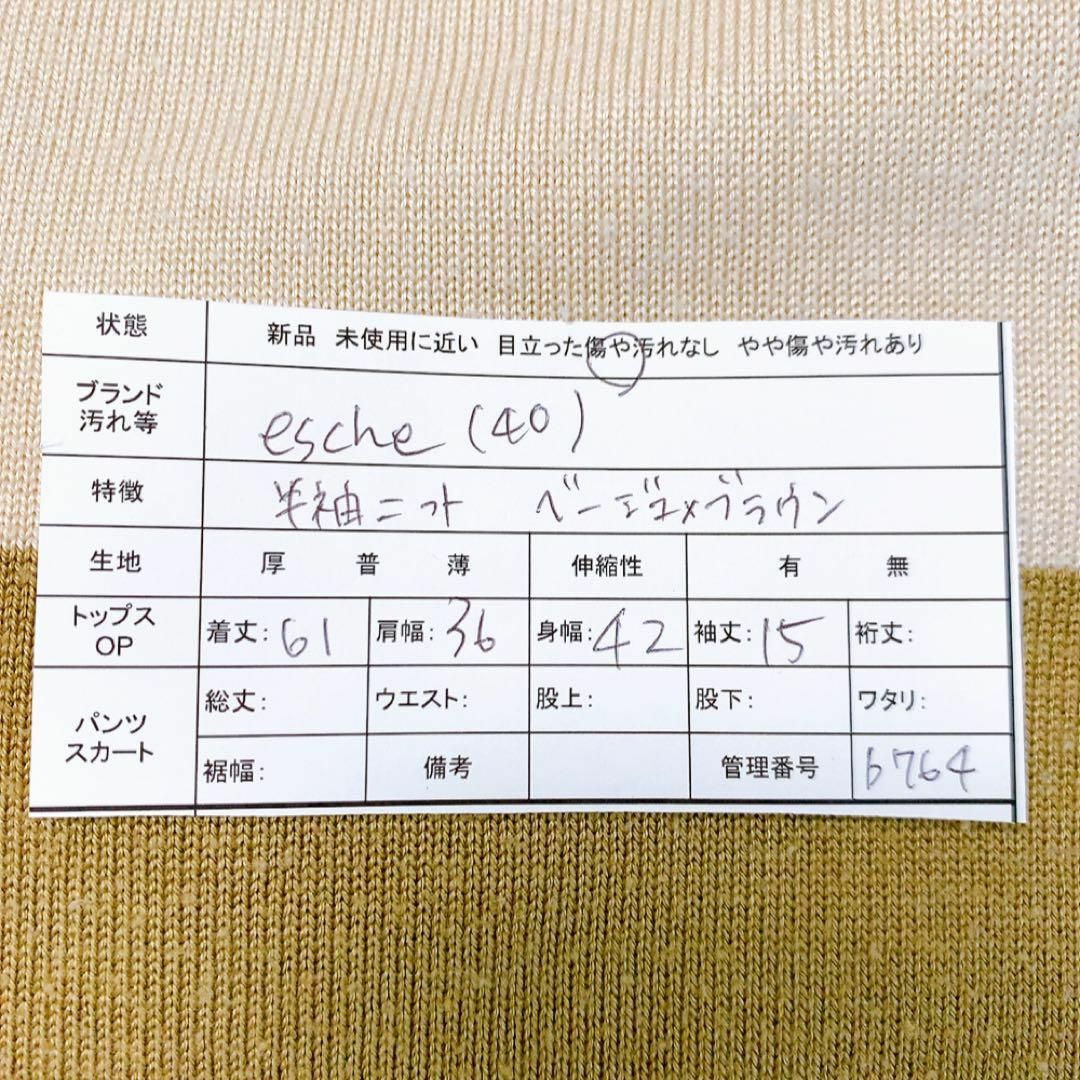 状態 新品 未使用に近い 目立った傷や汚れなし やや傷や汚れあり
ブランド
汚れ等 esche (40)
特徴 半袖ニット ベージュ×ブラウン
生地 厚 普 薄 伸縮性 有 無
トップス
OP 着丈: 61 肩幅: 36 身幅: 42 袖丈: 15 裄丈:
パンツ
スカート 総丈: ウエスト: 股上: 股下: ワタリ:
裾幅: 備考 管理番号 6764